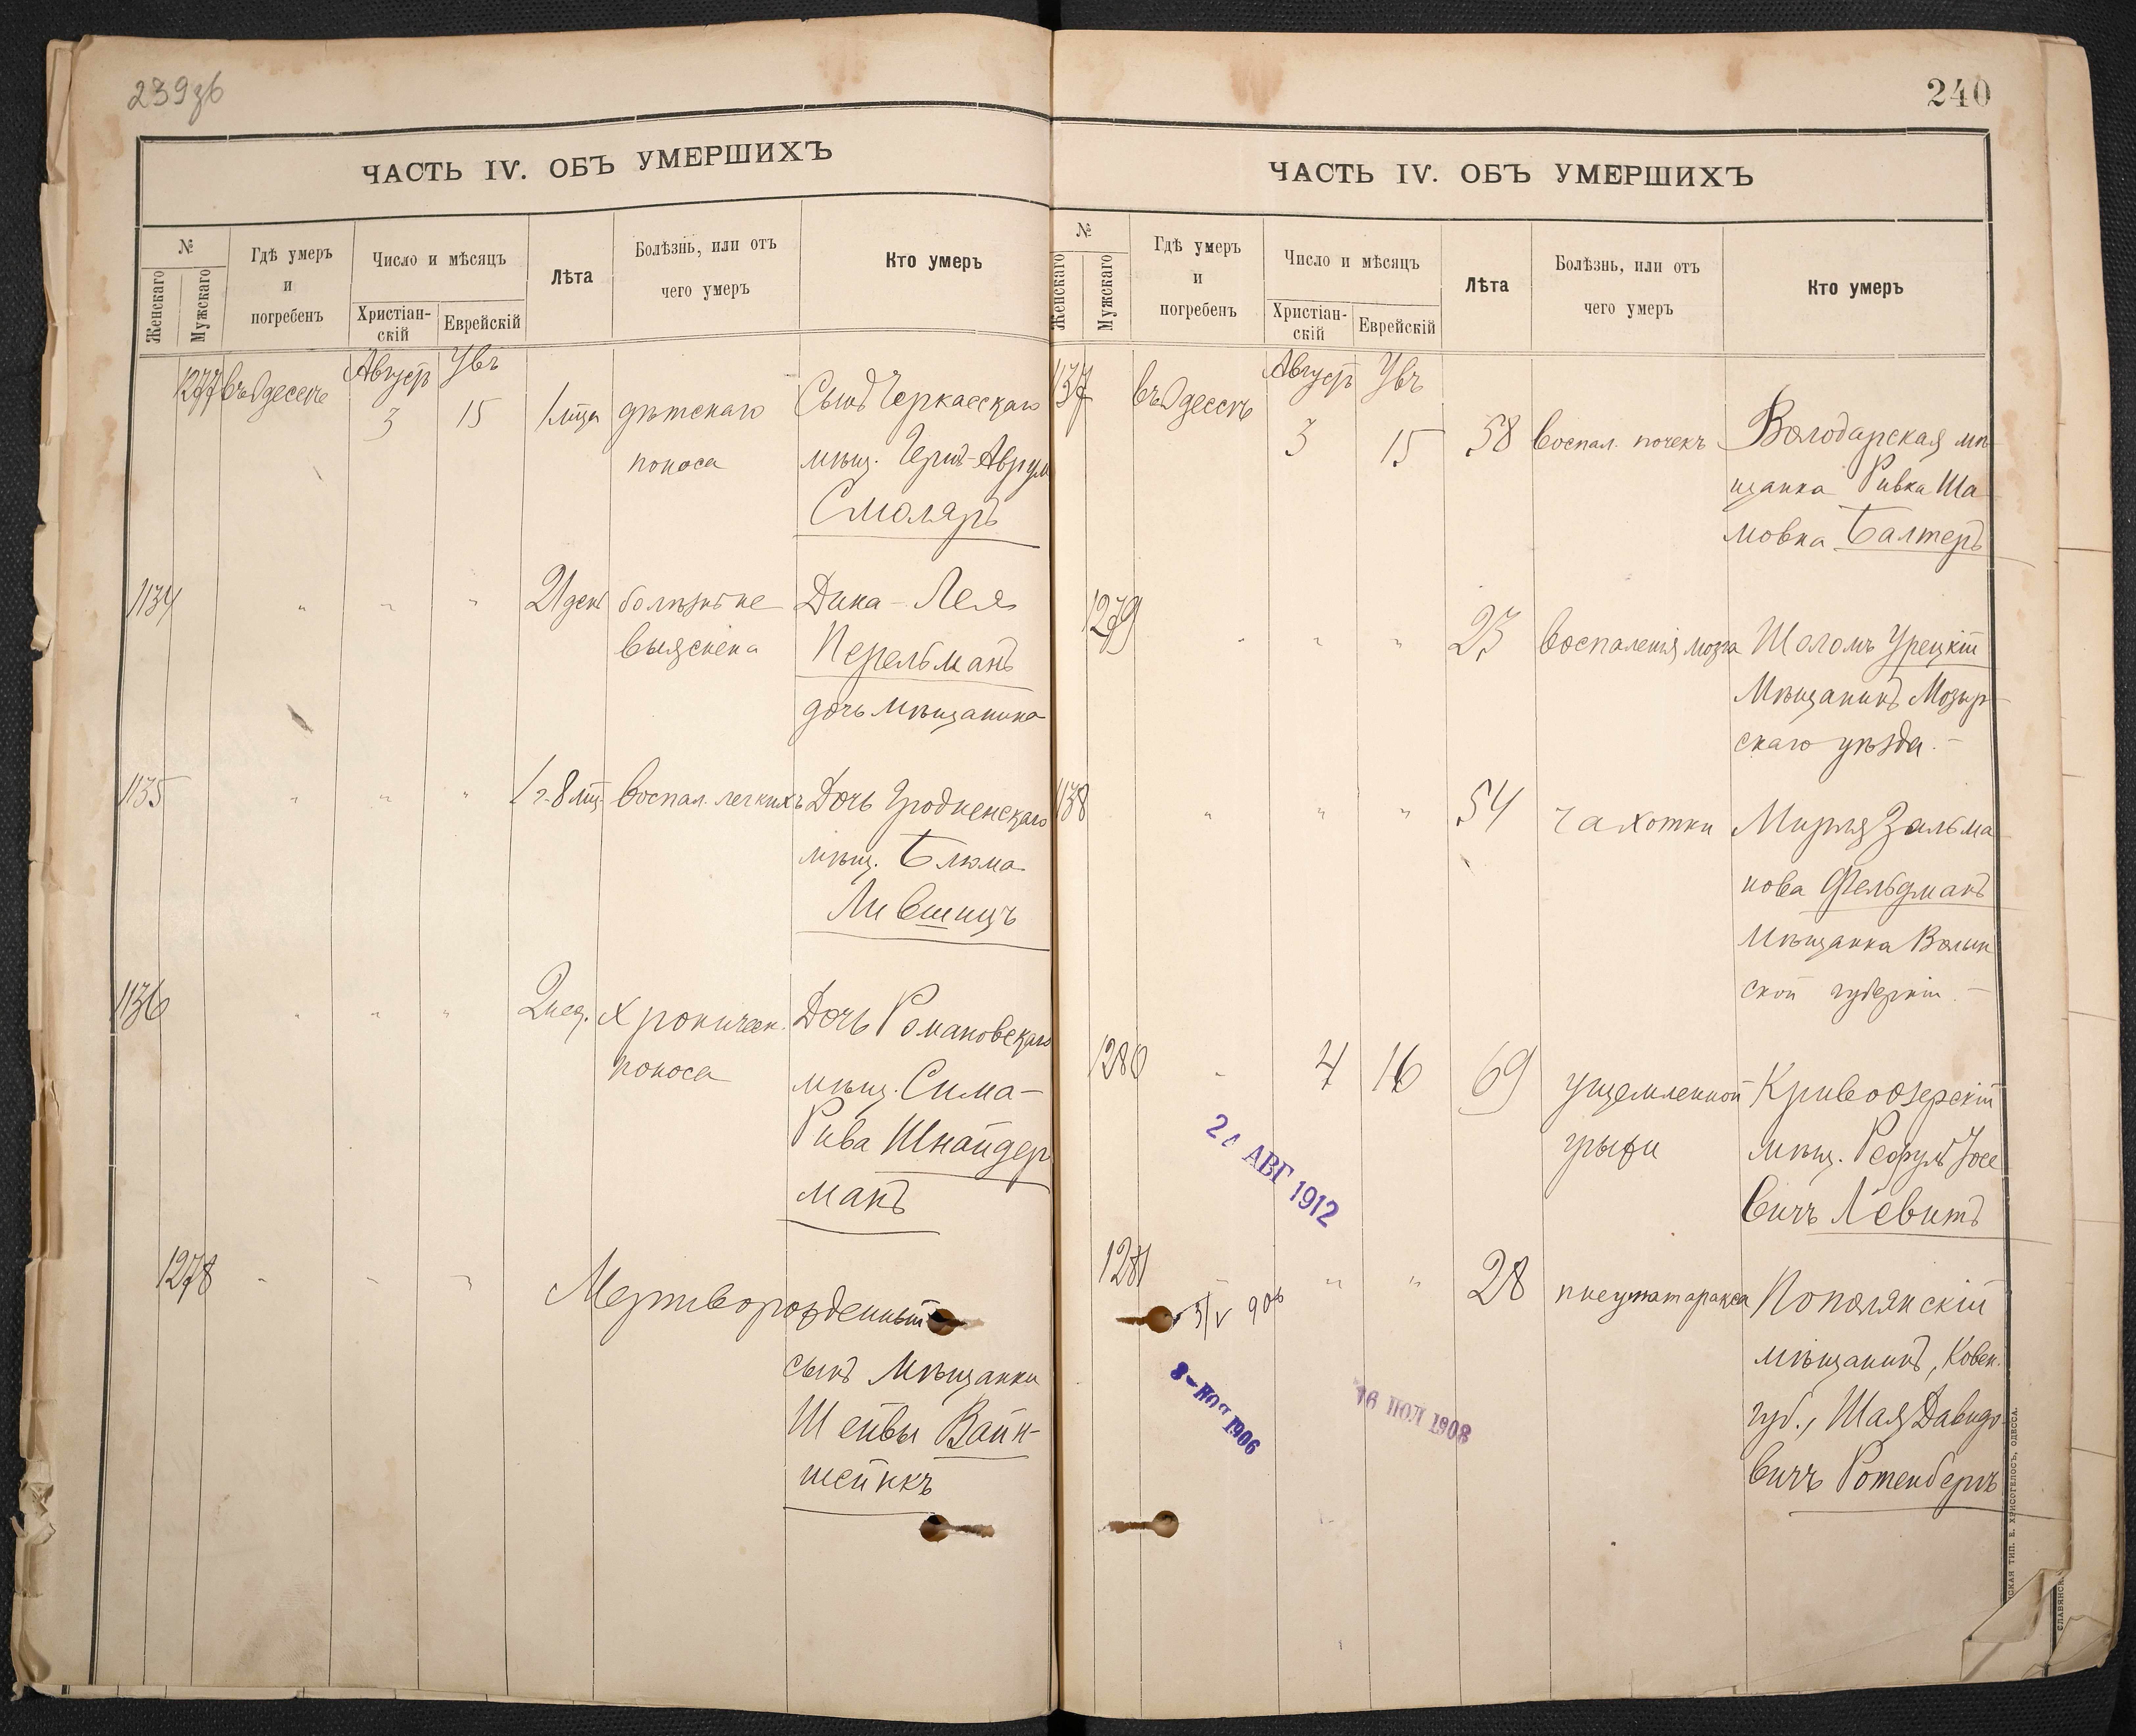 239зб
ЧАСТЬ IV. ОБЪ УМЕРШИХЪ
№
Женскаго
Мужскаго
Гдѣ умеръ
и
погребенъ
Число и мѣсяцъ
Христіан-
скій
Еврейскій
Лѣта
Болѣзнь, или отъ
чего умеръ
Кто умеръ
1277 въ Одессѣ Август 3 Увъ 15 1 мца дѣтскаго Сынъ Черкасскаго
поноса мѣщ. Герш-Аврум
Смоляръ
1134 " " " 21 ден болѣзнь не Дика-Лея
выяснена Перельманъ
дочь мѣщанина
1135 " " " 1 г. 8 мц воспал. легкихъ Дочь Гродненскаго
мѣщ. Блюма
Лившицъ
1136 " " " 2 нед. хроническ. Дочь Романовскаго
поноса мѣщ. Сима-
Рива Шнайдер
манъ
1278 " " " Мертворожденный
сынъ мѣщанки
Шейвы Вайн-
штейнъ
240
ЧАСТЬ IV. ОБЪ УМЕРШИХЪ
№
Женскаго
Мужскаго
Гдѣ умеръ
и
погребенъ
Число и мѣсяцъ
Христіан-
скій
Еврейскій
Лѣта
Болѣзнь, или отъ
чего умеръ
Кто умеръ
1137 въ Одессѣ Август 3 Увъ 15 58 воспал. почекъ Володарская мѣ
щанка Ривка Ша
мовна Балтеръ
1279 " " " 23 воспаленія мозга Шоломъ Урецкій
Мѣщанинъ Мозыр-
скаго уѣзда.-
1138 " " " 54 чахотки Мирля Зальма
нова Фельдманъ
Мѣщанка Волын
ской губерніи.-
1280 " 4 16 69 ущемленной Кривоозерскій
грыжи мѣщ. Рефулъ Іосе
вичъ Левитъ
АВГ 1912
1281 " " " 28 пнеуматаракса Попелянскій
мѣщанинъ, Ковен.
губ., Шая Давидо-
вичъ Ротенбергъ
1906
16 ІЮЛ 1908
СКАЯ ТИП. Е. ХРИСОГЕЛОСЪ, ОДЕССА.
СЛАВЯНСК